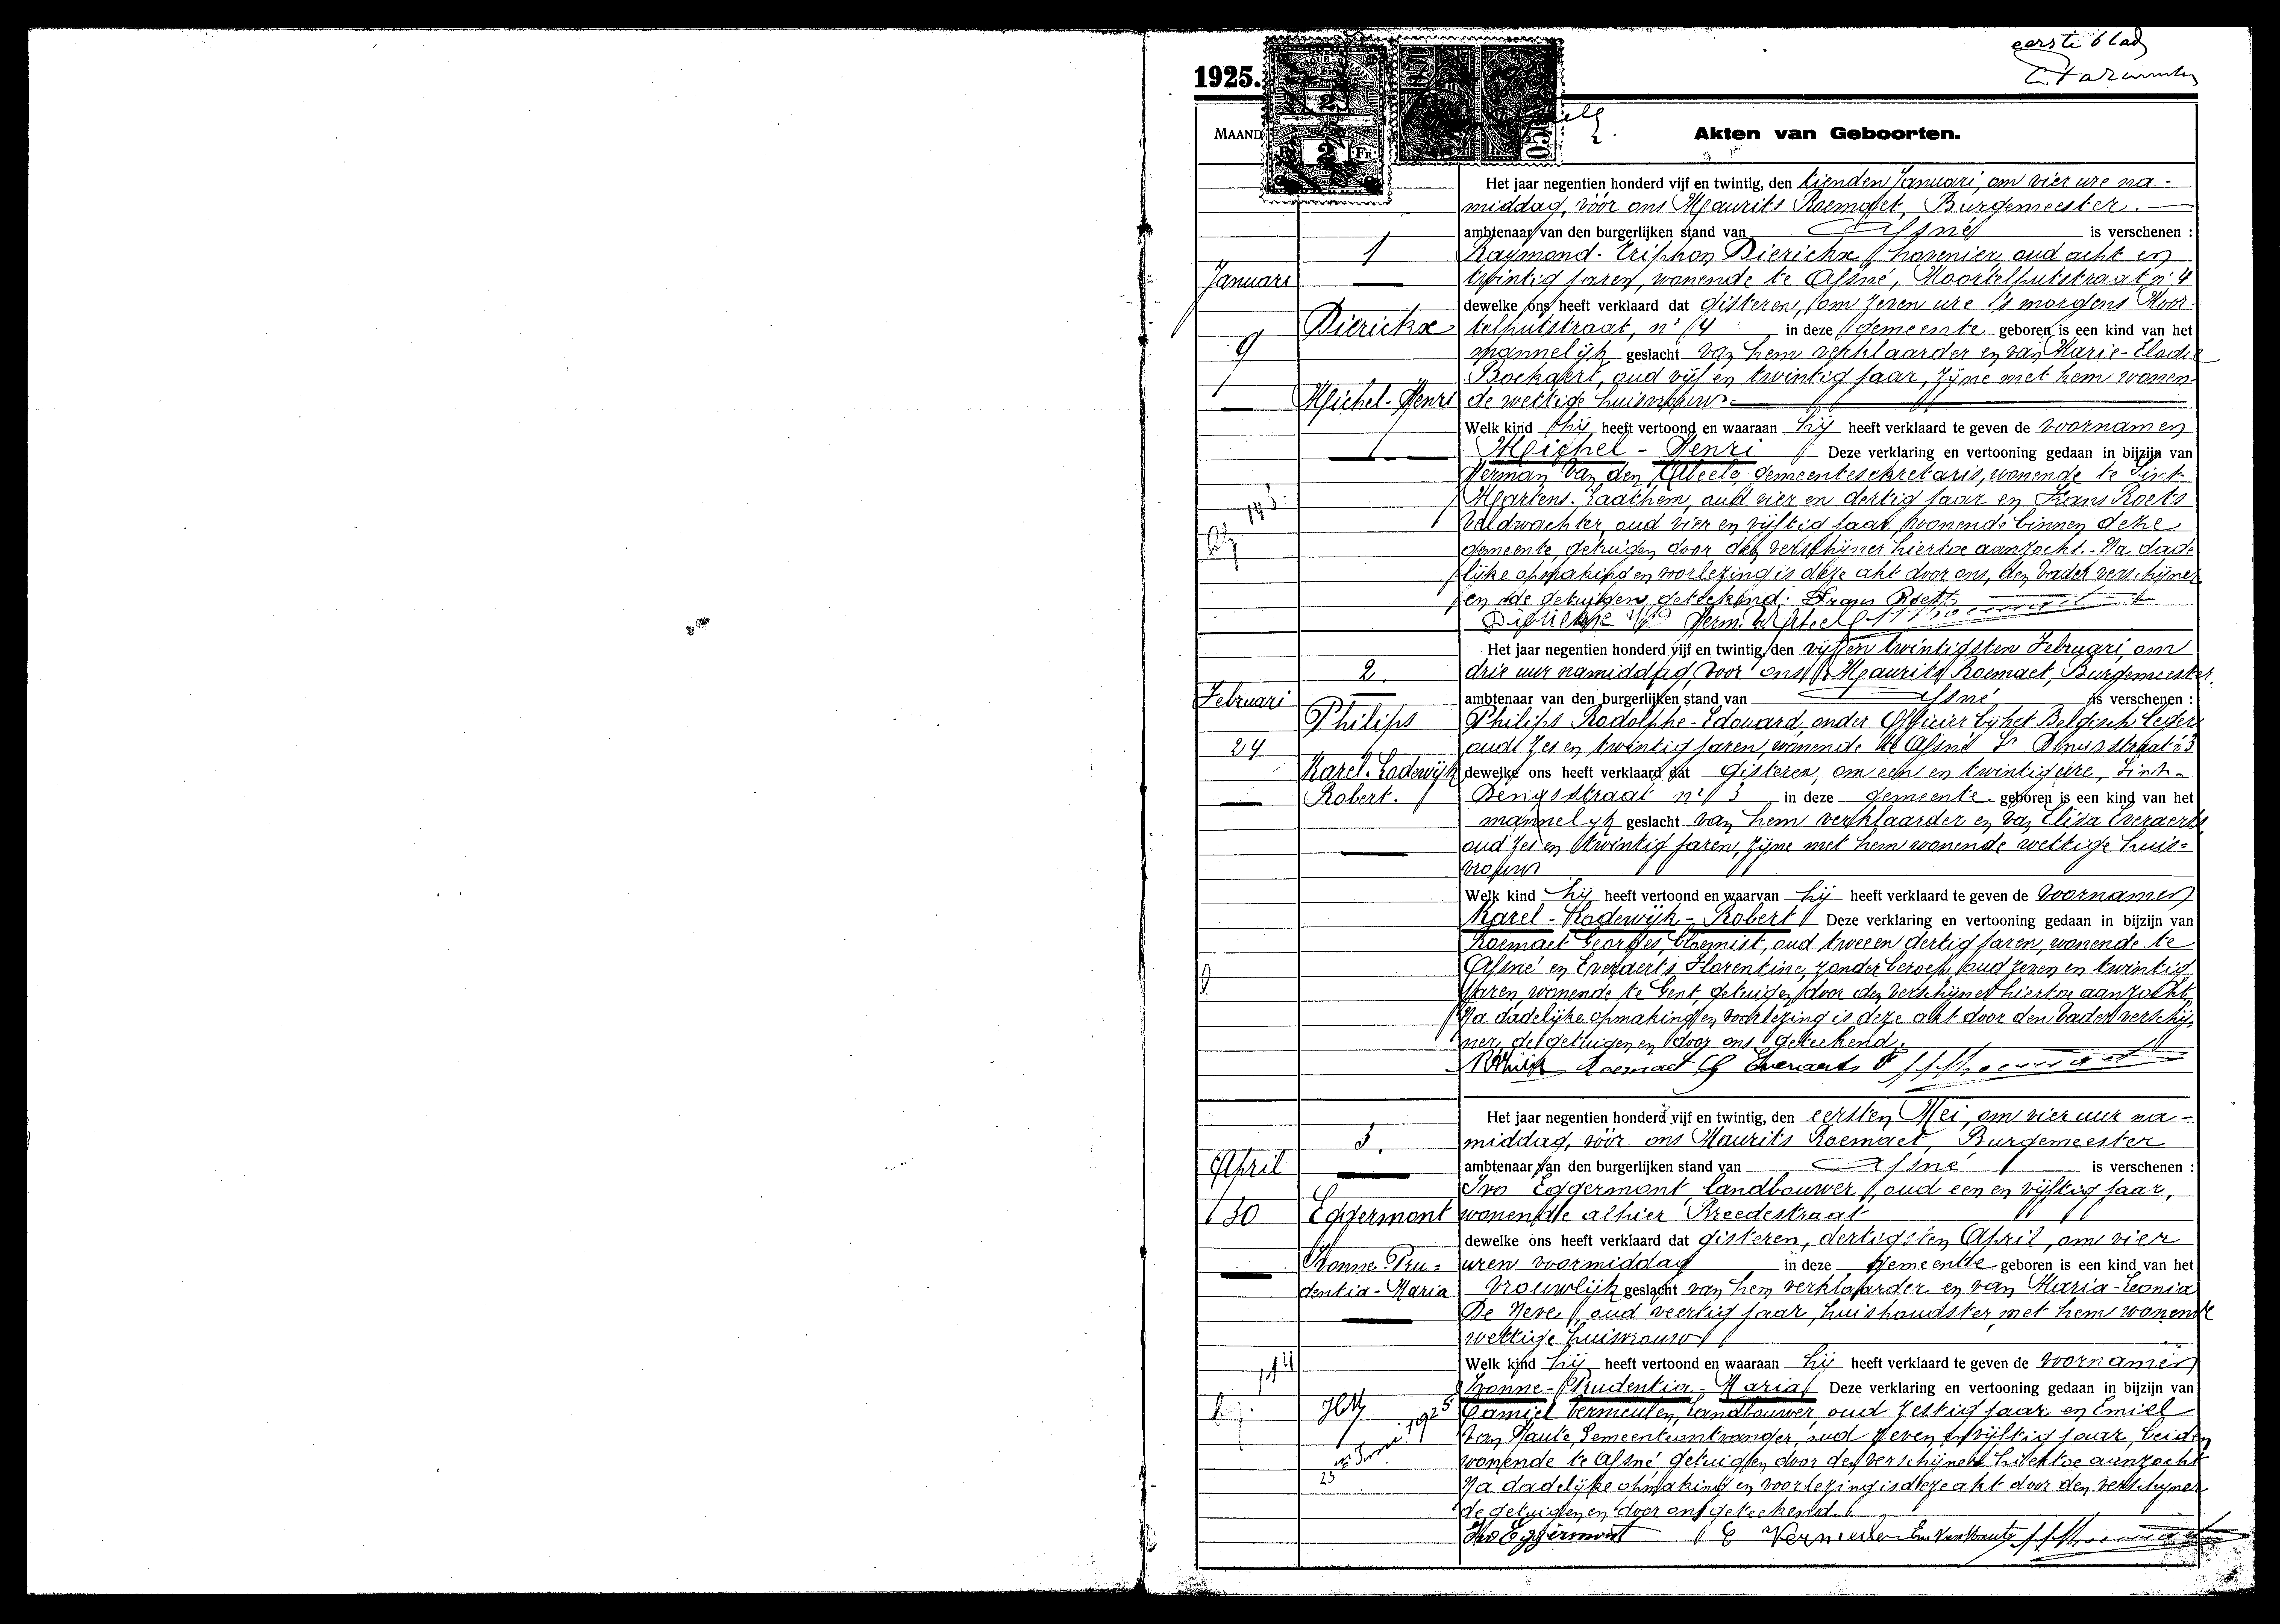 eerste blad
1925.
MAAND
Akten van Geboorten.
Het jaar negentien honderd vijf en twintig, den tienden Januari, om vier ure na-
middag, vóór ons Maurits Roemaet, Burgemeester.
ambtenaar van den burgerlijken stand van Afsné is verschenen :
1
Raymond-Triphon Dierickx, hovenier, oud acht en
Januari
twintig jaren, wonende te Afsné, Moortelputstraat, n° 4
dewelke ons heeft verklaard dat gisteren, om zeven ure 's morgens Moor-
Dierickx
telputstraat, n° 4 in deze gemeente geboren is een kind van het
9
mannelijk geslacht van hem verklaarder en van Marie-Elodie
Boekaert, oud vijf en twintig jaar, zijne met hem wonen-
Michel-Henri
de wettige huisvrouw.
Welk kind hij heeft vertoond en waaraan hij heeft verklaard te geven de voornamen
Michel - Henri Deze verklaring en vertooning gedaan in bijzijn van
Herman Van den Abeele, gemeentesekretaris, wonende te Sint-
Martens-Laathem, oud vier en dertig jaar en Frans Roets
veldwachter, oud vier en vijftig jaar, wonende binnen deze
gemeente, getuigen door den verschijner hiertoe aanzocht. Na dade
lijke opmaking en voorlezing is deze akt door ons, den vader verschijner
en de getuigen geteekend. Frans Roets
Dierickx
Het jaar negentien honderd vijf en twintig, den vijf en twintigsten Februari, om
2.
drie uur namiddag, voor ons Maurits Roemaet, Burgemeester.
Februari
ambtenaar van den burgerlijken stand van Afsné is verschenen :
Philips
Philips Rodolphe-Edouard, onder Officier bij het Belgisch leger
24
oud zes en twintig jaren, wonende te Afsné St Denysstraat n° 3
Karel-Lodewijk
dewelke ons heeft verklaard dat gisteren, om een en twintig ure, Sint-
Robert.
Denysstraat n° 3 in deze gemeente geboren is een kind van het
mannelijk geslacht van hem verklaarder en van Elisa Everaerts
oud zes en twintig jaren, zijne met hem wonende wettige huis-
vrouw
Welk kind hij heeft vertoond en waarvan hij heeft verklaard te geven de voornamen
Karel - Lodewijk - Robert Deze verklaring en vertooning gedaan in bijzijn van
Roemaet Georges, bloemist, oud twee en dertig jaren, wonende te
Afsné en Everaerts Florentine, zonder beroep, oud zeven en twintig
jaren, wonende te Gent, getuigen door den verschijner hiertoe aanzocht.
Na dadelijke opmaking en voorlezing is deze akt door den vader verschij-
ner, de getuigen en door ons geteekend.
RPhilips Roemaet G Everaerts F
Het jaar negentien honderd vijf en twintig, den eersten Mei, om vier uur na-
3.
middag, vóór ons Maurits Roemaet, Burgemeester
April
ambtenaar van den burgerlijken stand van Afsné is verschenen :
Ivo Eggermont, landbouwer, oud een en vijftig jaar,
30
Eggermont
wonende alhier Breedestraat
dewelke ons heeft verklaard dat gisteren, dertigsten April, om vier
Ivonne-Pru-
uren voormiddag in deze gemeente geboren is een kind van het
dentia-Maria
vrouwlijk geslacht van hem verklaarder en van Maria-Leonia
De Neve, oud veertig jaar, huishoudster, met hem wonende
wettige huisvrouw
Welk kind hij heeft vertoond en waaraan hij heeft verklaard te geven de voornamen
Ivonne-Prudentia-Maria Deze verklaring en vertooning gedaan in bijzijn van
Camiel Vermeulen, landbouwer, oud zestig jaar en Emiel
Van Haute Gemeenteontvanger, oud zeven en vijftig jaar, beiden
wonende te Afsné getuigen door den verschijner hiertoe aanzocht
Na dadelijke opmaking en voorlezing is deze akt door den verschijner
de getuigen en door ons geteekend.
Ivo Eggermont C Vermeulen Em Van Haute